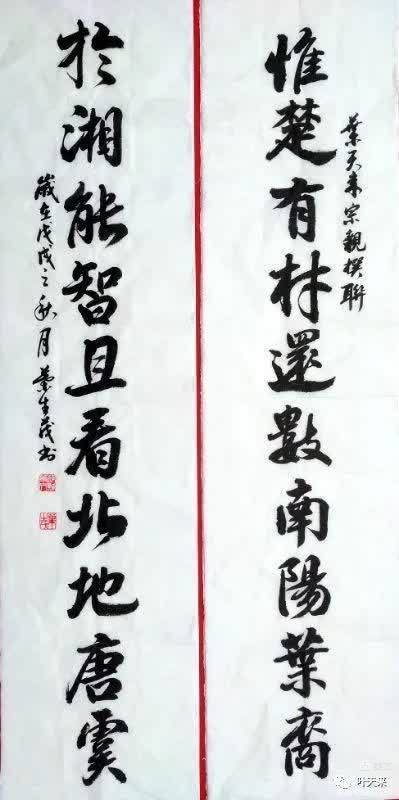 葉天來宗親撰聯
惟楚有材還數南陽葉裔
於湘能智且看北地唐虞
歲在戊戌之秋月葉生茂書
叶天来